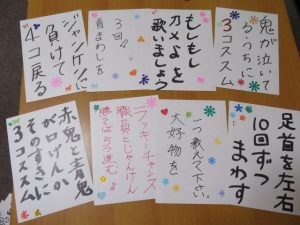 ジャンケンに
負けて
4コ戻る
首まわしを
3回!!
もしもし
カメよを
歌いましょう
鬼が泣いて
るうちに
3コススム
赤鬼と青鬼
が口げんか
そのすきに
3コススム
ラッキーチャンス
職員とじゃんけん
勝てば5つ進む
大好物を
一つ教えて下さい
足首を左右
10回ずつ
まわす